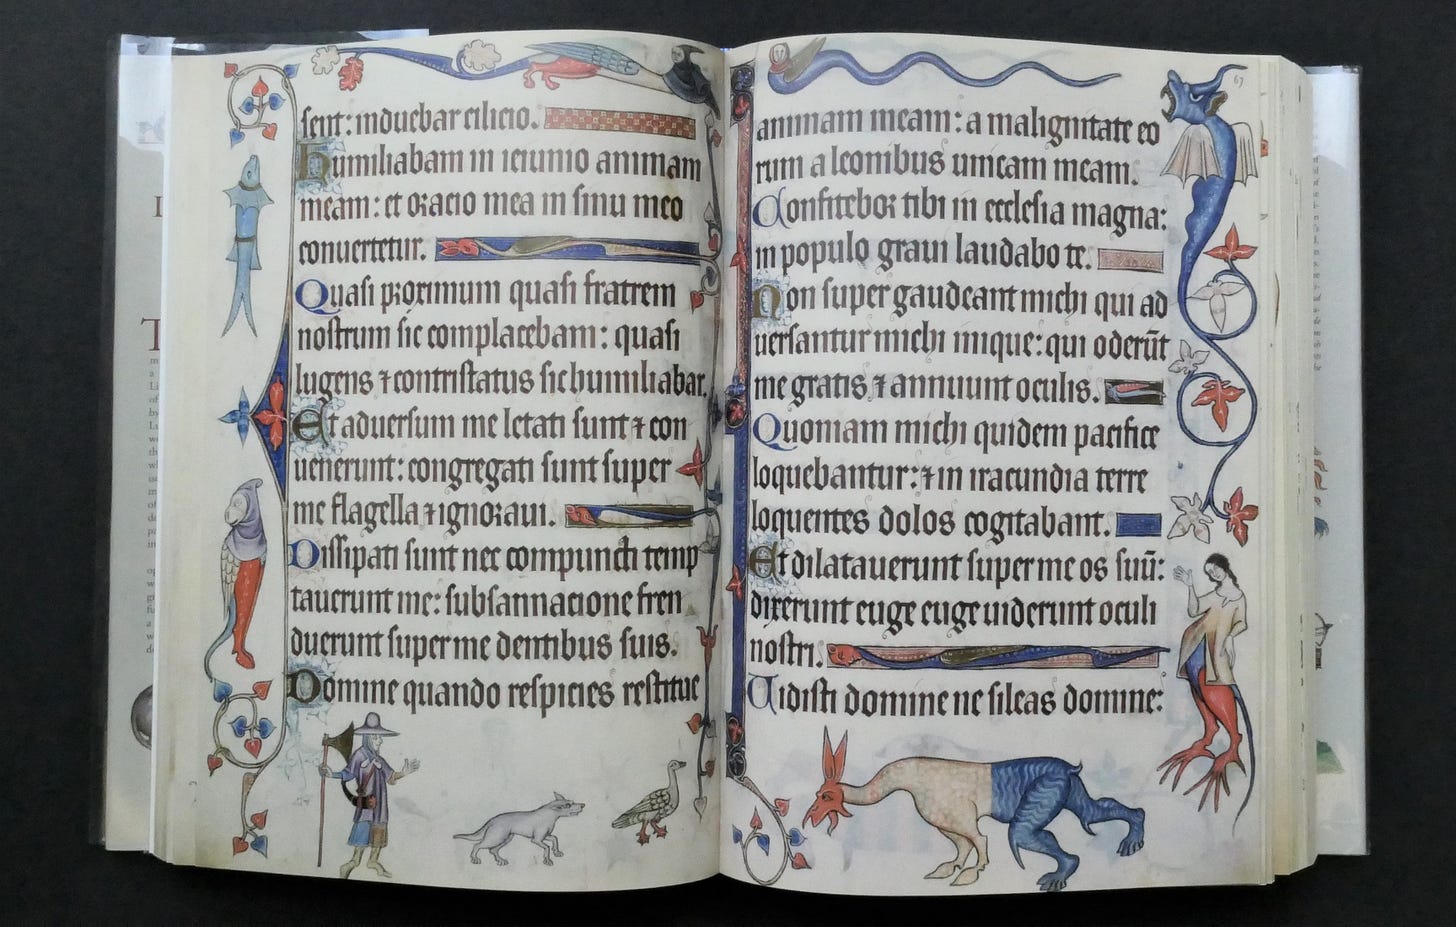 sent: induebar cilicio.
Humiliabam in ieiunio animam
meam: et oracio mea in sinu meo
conuertetur.
Quasi proximum quasi fratrem
nostrum sic complacebam: quasi
lugens ⁊ contristatus sic humiliabar.
Et aduersum me letati sunt ⁊ con
uenerunt: congregati sunt super
me flagella ⁊ ignoraui.
Dissipati sunt nec compuncti temp
tauerunt me: subsannacione fren
duerunt super me dentibus suis.
Domine quando respicies restitue
67
animam meam: a malignitate eo
rum a leonibus unicam meam.
Confitebor tibi in ecclesia magna:
in populo graui laudabo te.
Non super gaudeant michi qui ad
uersantur michi inique: qui oderūt
me gratis ⁊ annuunt oculis.
Quoniam michi quidem pacifice
loquebantur: ⁊ in iracundia terre
loquentes dolos cogitabant.
Et dilatauerunt super me os suū:
dixerunt euge euge uiderunt oculi
nostri.
Uidisti domine ne sileas domine: